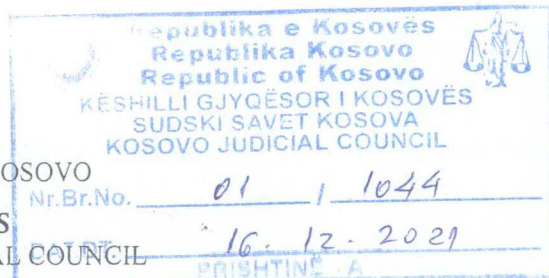 Republika e Kosovës
Republika Kosovo
Republic of Kosovo
KËSHILLI GJYQËSOR I KOSOVËS
SUDSKI SAVET KOSOVA
KOSOVO JUDICIAL COUNCIL
OSOVO
Nr.Br.No. 01 / 1044
S
16. 12. 2021
L COUNCIL
PRISHTINË A